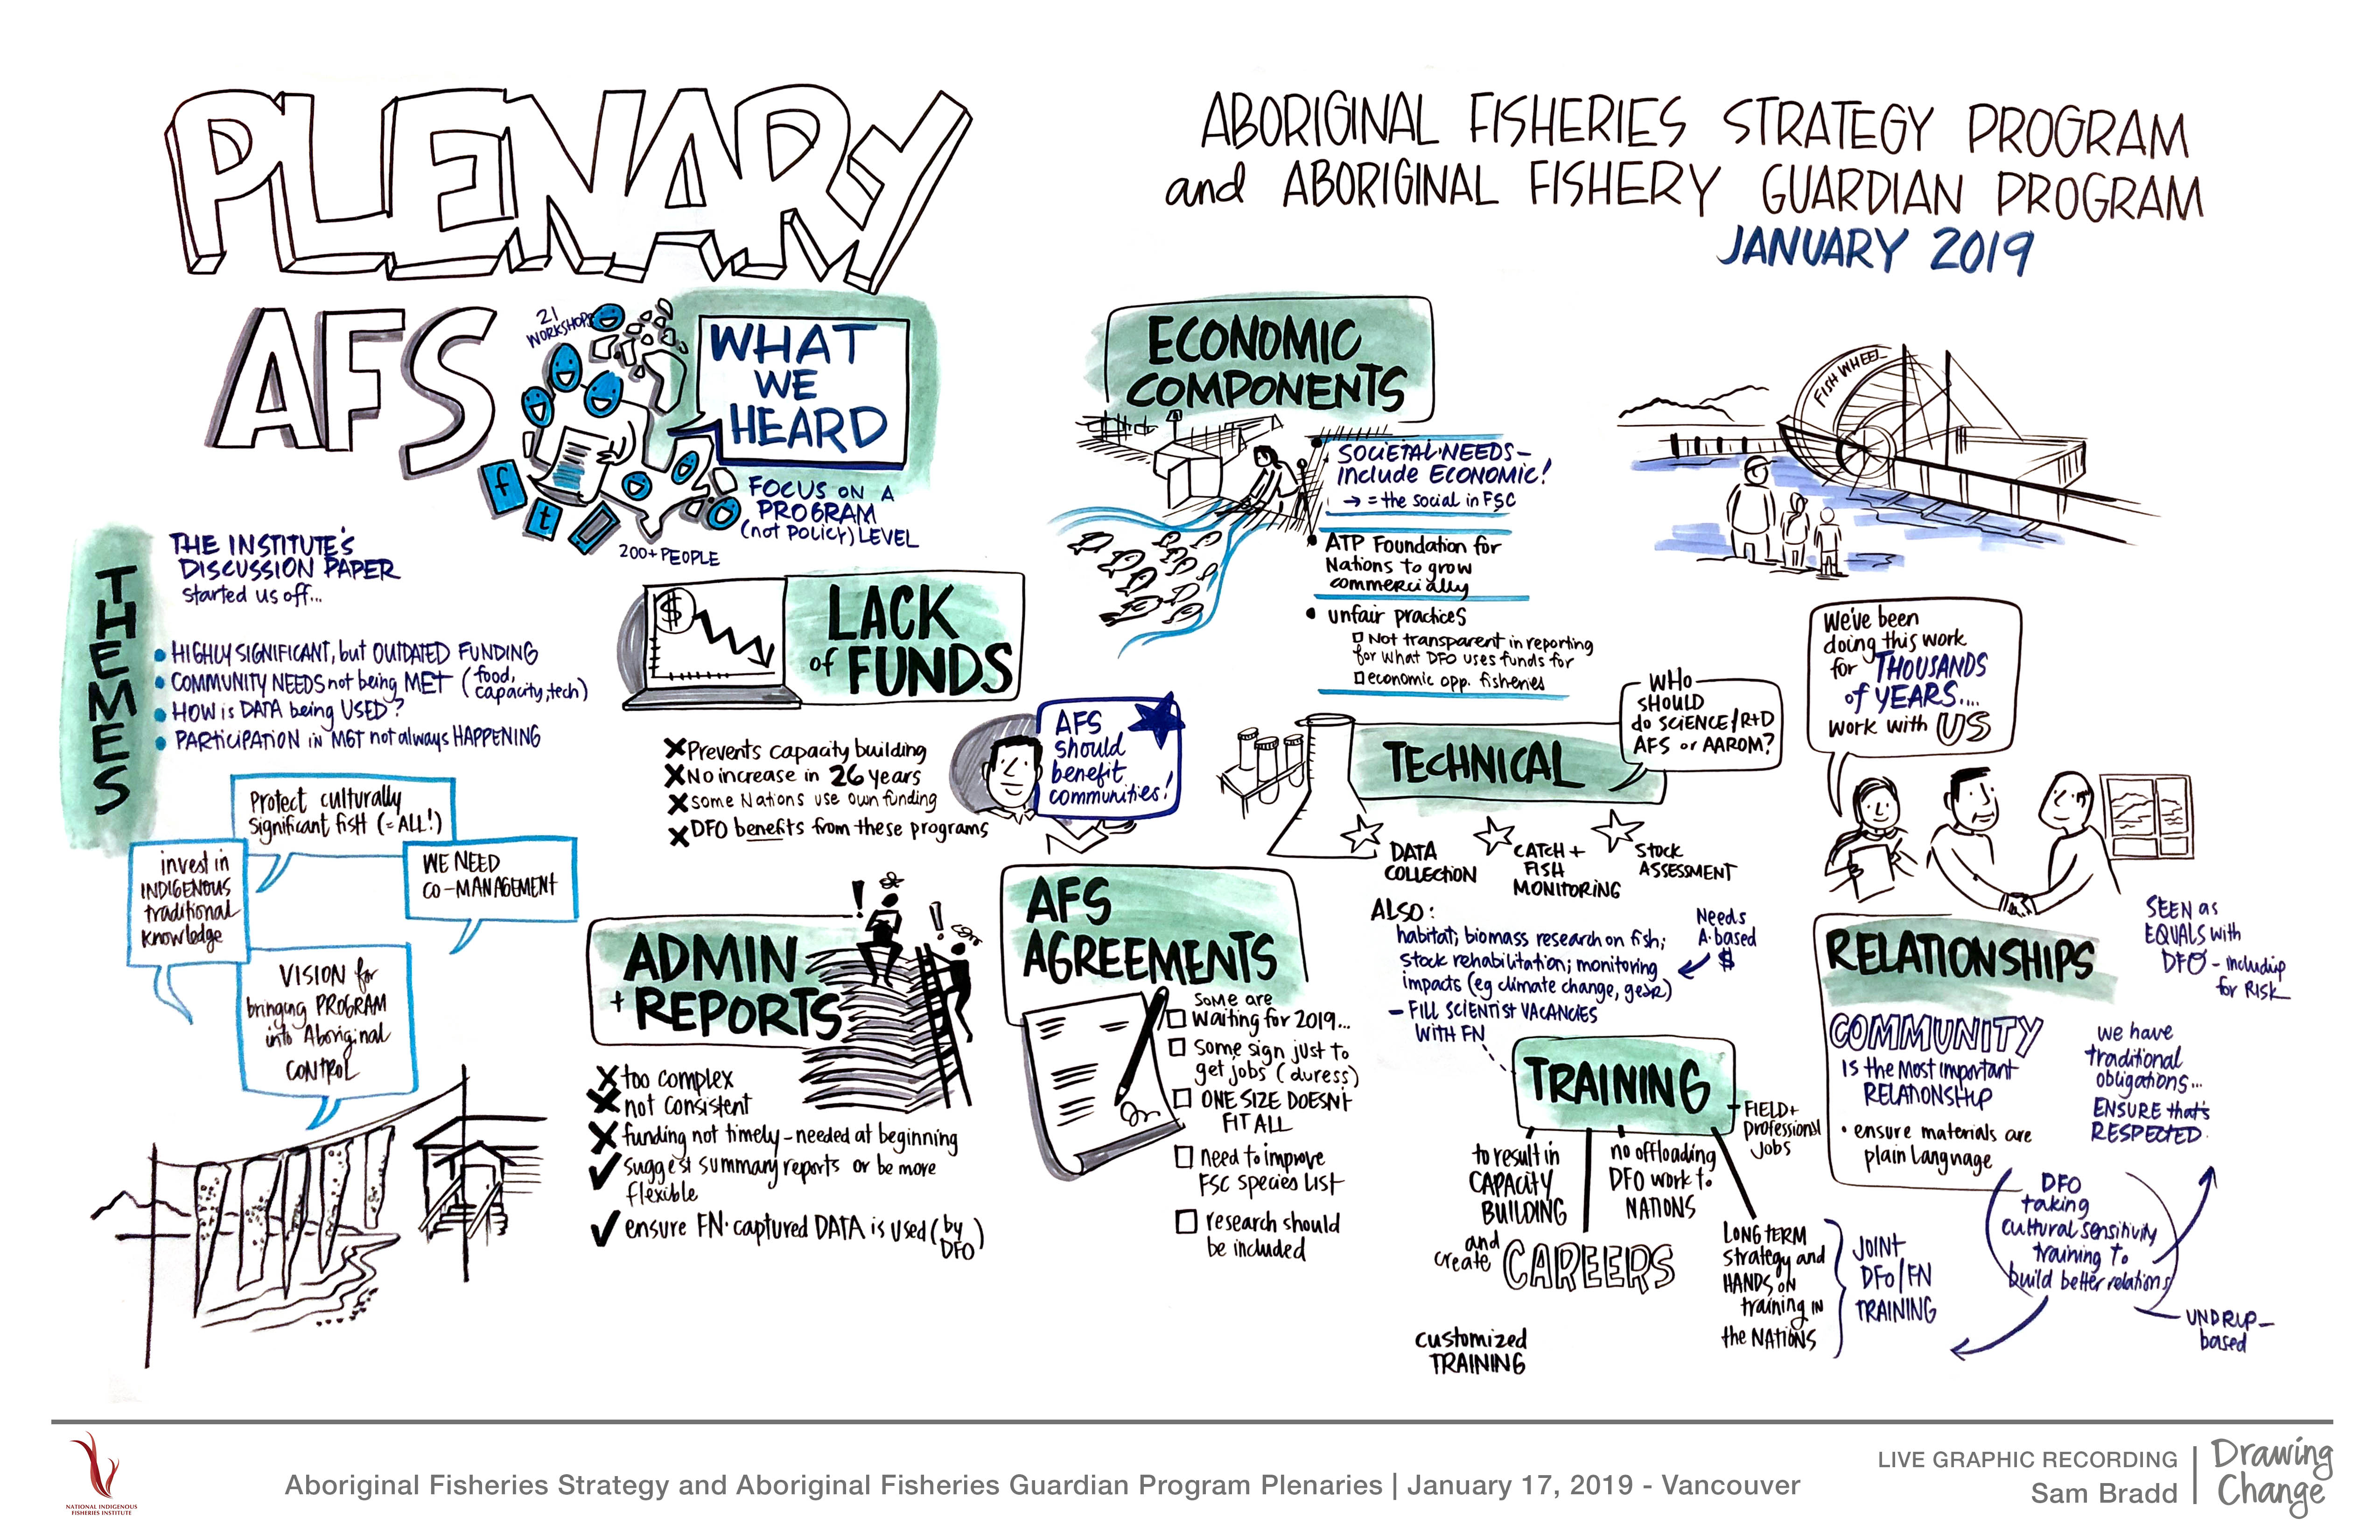 PLENARY
ABORIGINAL FISHERIES STRATEGY PROGRAM
and ABORIGINAL FISHERY GUARDIAN PROGRAM
JANUARY 2019
AFS
21
WORKSHOPS
f
t
200+ PEOPLE
WHAT
WE
HEARD
FOCUS ON A
PROGRAM
(not POLICY) LEVEL
THEMES
THE INSTITUTE'S
DISCUSSION PAPER
started us off...
HIGHLY SIGNIFICANT, but OUTDATED FUNDING
COMMUNITY NEEDS not being MET (food,
capacity, tech)
HOW is DATA being USED?
PARTICIPATION IN MGT not always HAPPENING
Protect culturally
significant fish (= ALL!)
invest in
INDIGENOUS
traditional
knowledge
WE NEED
CO-MANAGEMENT
VISION for
bringing PROGRAM
into Aboriginal
CONTROL
$
LACK
of FUNDS
Prevents capacity building
No increase in 26 years
some Nations use own funding
DFO benefits from these programs
AFS
should
benefit
communities!
! !
ADMIN
+ REPORTS
too complex
not consistent
funding not timely - needed at beginning
suggest summary reports or be more
flexible
ensure FN-captured DATA is used (by
DFO)
AFS
AGREEMENTS
Some are
waiting for 2019...
Some sign just to
get jobs (duress)
ONE SIZE DOESN'T
FIT ALL
need to improve
FSC SPECIES LIST
research should
be included
ECONOMIC
COMPONENTS
SOCIETAL NEEDS -
include ECONOMIC!
→ = the social in FSC
• ATP Foundation for
Nations to grow
commercially
• unfair practices
Not transparent in reporting
for what DFO uses funds for
economic opp. fisheries
FISH WHEEL
TECHNICAL
WHO
SHOULD
do SCIENCE/R+D
AFS or AAROM?
DATA
COLLECTION
CATCH +
FISH
MONITORING
STOCK
ASSESSMENT
ALSO:
habitat; biomass research on fish;
stock rehabilitation; monitoring
impacts (eg climate change, gear)
Needs
A-based
$
- FILL SCIENTIST VACANCIES
WITH FN
TRAINING
FIELD +
professional
jobs
to result in
CAPACITY
BUILDING
and
create CAREERS
no offloading
DFO work to
NATIONS
LONG TERM
strategy and
HANDS ON
training IN
the NATIONS
JOINT
DFO/FN
TRAINING
customized
TRAINING
We've been
doing this work
for THOUSANDS
of YEARS....
work with US
RELATIONSHIPS
SEEN as
EQUALS with
DFO - including
for RISK
COMMUNITY
IS the Most important
RELATIONSHIP
• ensure materials are
plain language
we have
traditional
obligations...
ENSURE that's
RESPECTED.
DFO
taking
cultural sensitivity
training to
build better relations
UNDRIP-
based
NATIONAL INDIGENOUS
FISHERIES INSTITUTE
Aboriginal Fisheries Strategy and Aboriginal Fisheries Guardian Program Plenaries | January 17, 2019 - Vancouver
LIVE GRAPHIC RECORDING
Sam Bradd
Drawing
Change